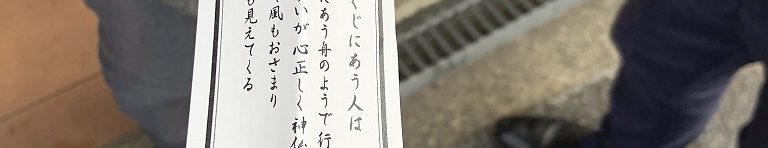 くじにあう人は
にあう舟のようで行
いが心正しく神仏
風もおさまり
も見えてくる